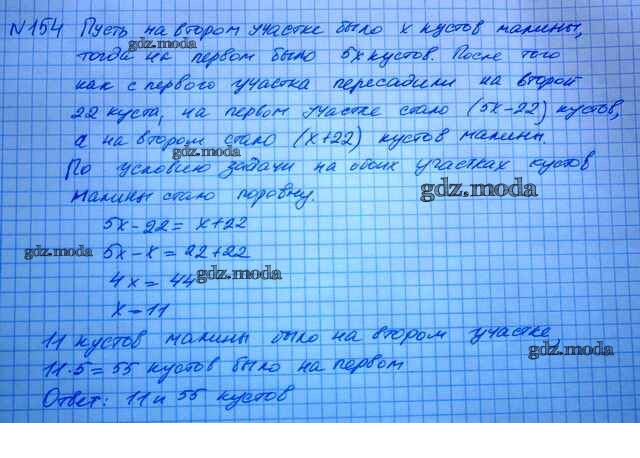 N154 Пусть на втором участке было x кустов малины,
gdz.moda
тогда на первом было 5x кустов. После того
как с первого участка пересадили на второй
22 куста, на первом участке стало (5x-22) кустов,
а на втором стало (x+22) кустов малины.
gdz.moda
По условию задачи на обоих участках кустов
малины стало поровну.
gdz.moda
5x-22=x+22
gdz.moda
5x-x=22+22
4x=44
gdz.moda
x=11
11 кустов малины было на втором участке,
gdz.moda
11·5=55 кустов было на первом
Ответ: 11 и 55 кустов